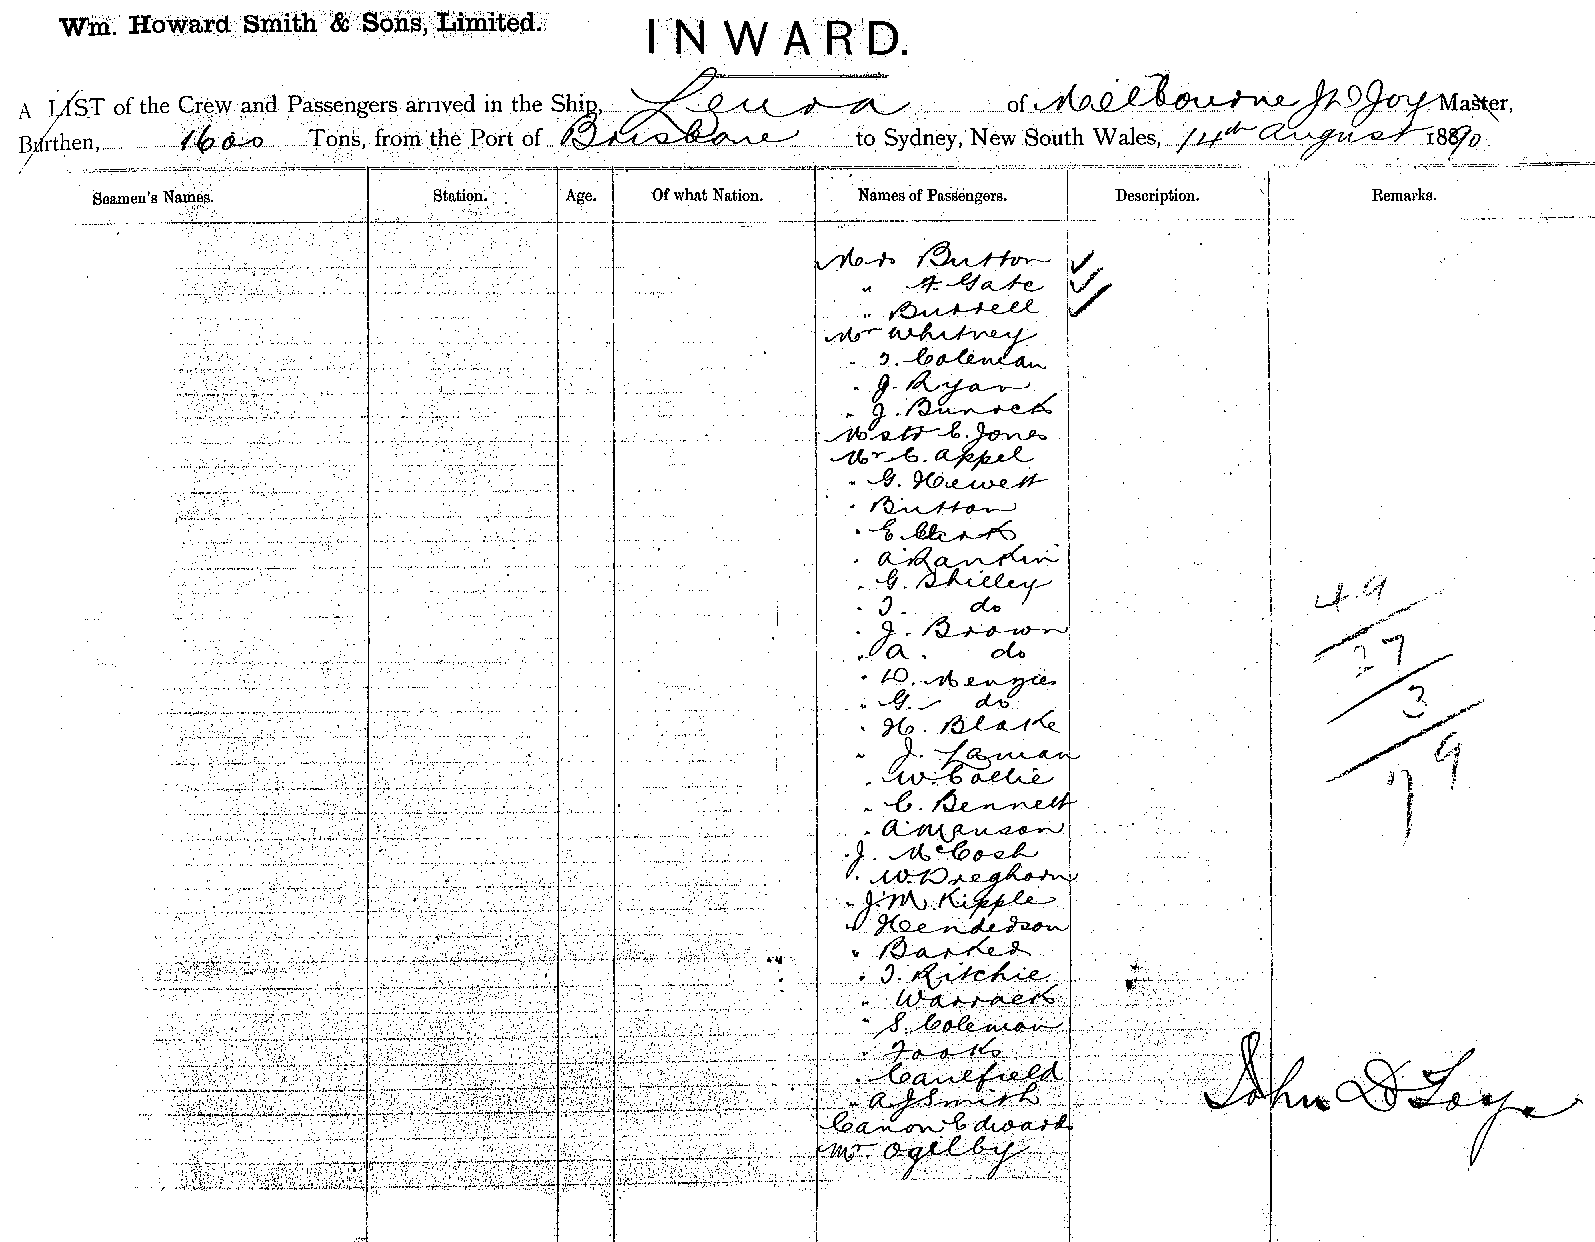 Wm. Howard Smith & Sons, Limited.
INWARD.
A LIST of the Crew and Passengers arrived in the Ship, Leura of Melbourne Jn D Joy Master,
Burthen, 1600 Tons, from the Port of Brisbane to Sydney, New South Wales, 14th August 1890
Seamen's Names. Station. Age. Of what Nation. Names of Passengers. Description. Remarks.
Mrs Button
" F. Gate
" Burrell
Mr Whitney
" T. Coleman
" J. Ryan
" J.
Mstr C. Jones
Mr C. Appel
" G. Hewett
" Button
" E. Clark
" A Rankin
" G. Shilley
" T. do
" J. Brown
" A. do
" D. Menzies
" G. do
" H. Blake
" J. Laman
" W. Collie
" C. Bennett
" A Manson
" J. McCosh
" W. Dreghorn
" J. M Kipple
" Henderson
" Barker
" T. Ritchie
" Warrack
" S. Coleman
" Fooks
" Caulfield
" A J Smith
Canon Edwards
Mr Ogilby
49
27
3
79
John D